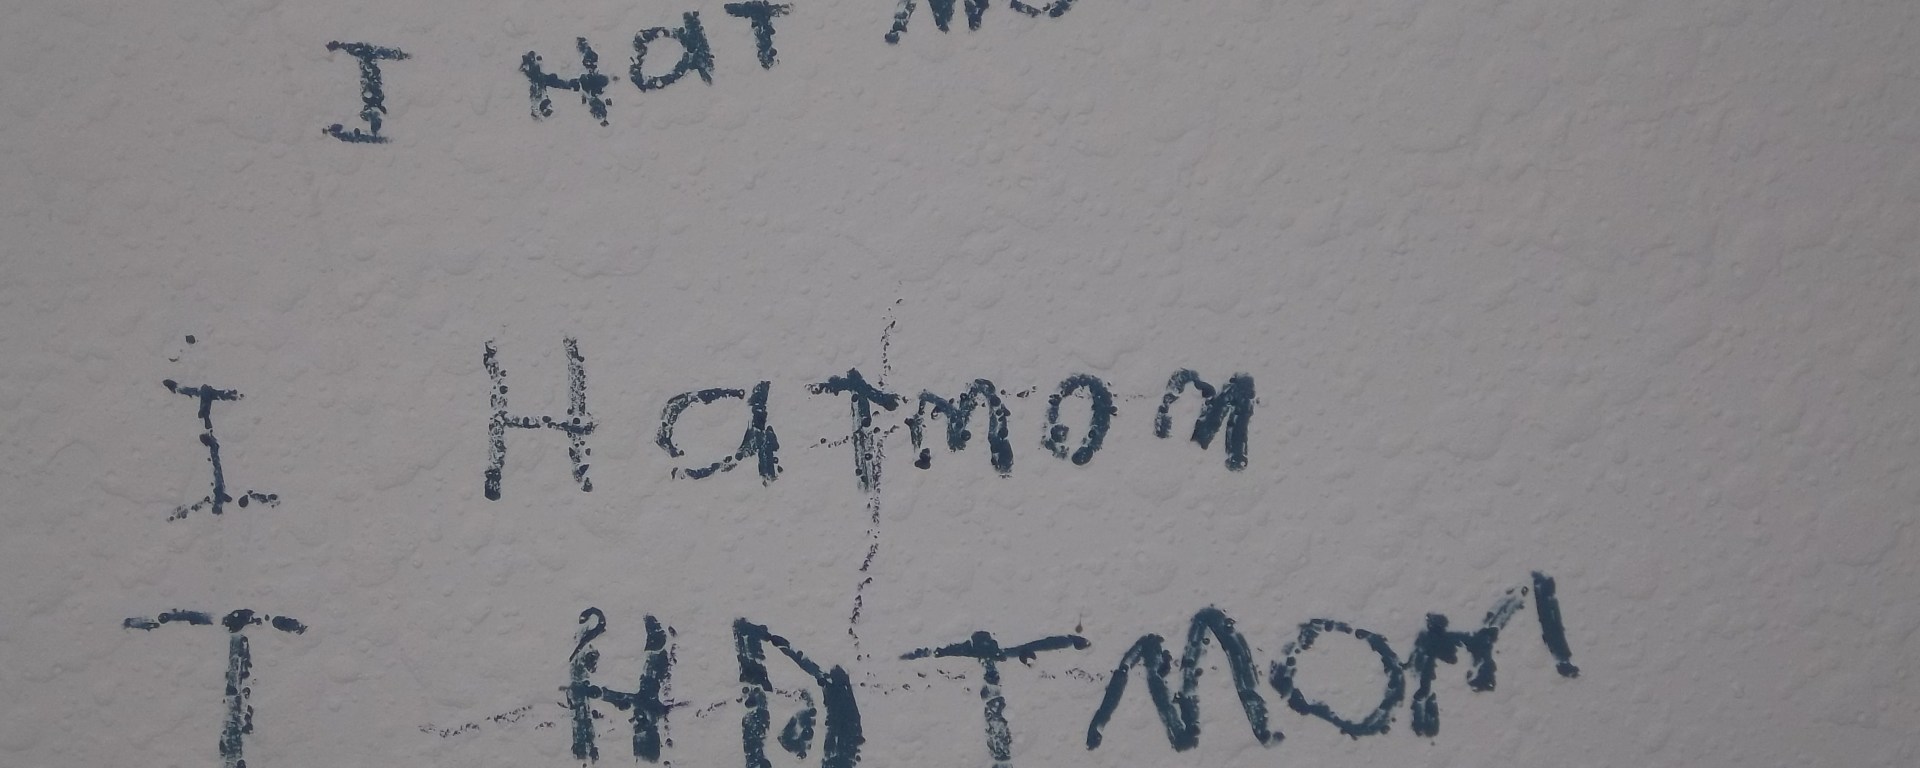 I HaT
I Hat mom
I HAT MOM